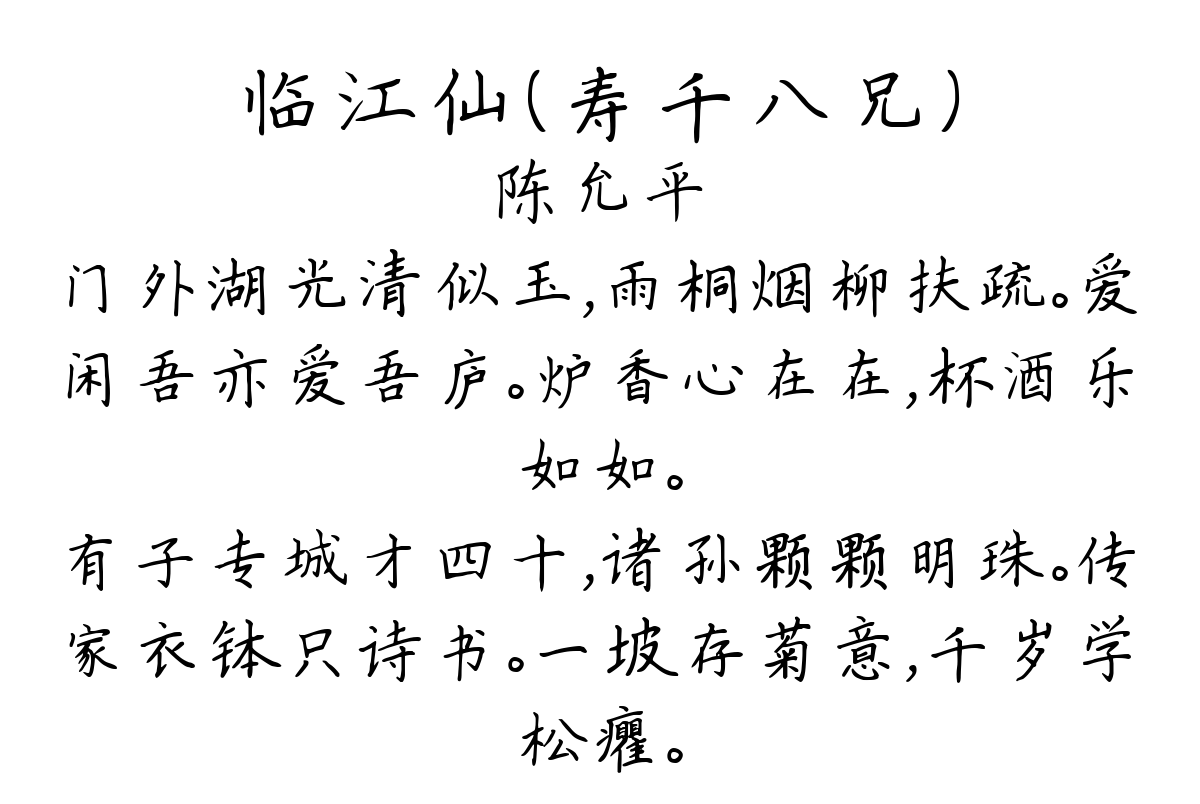 临江仙(寿千八兄)
陈允平
门外湖光清似玉,雨桐烟柳扶疏。爱
闲吾亦爱吾庐。炉香心在在,杯酒乐
如如。
有子专城才四十,诸孙颗颗明珠。传
家衣钵只诗书。一坡存菊意,千岁学
松癯。